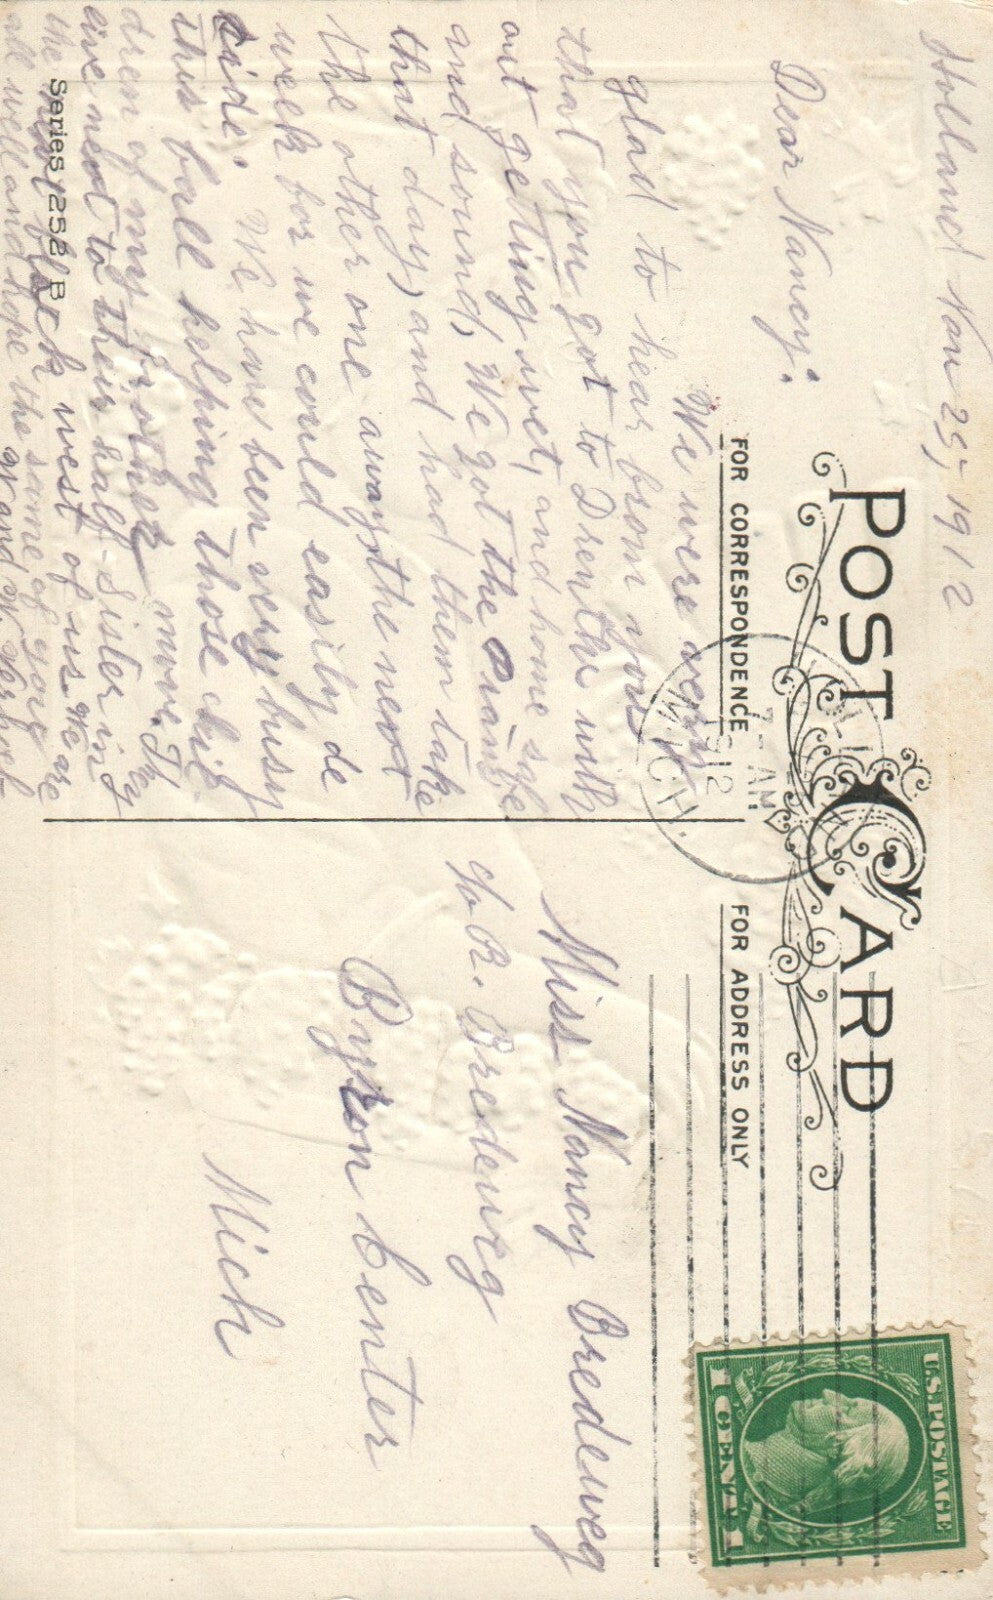 Holland Nov 25, 1912
POST CARD
Dear Nancy:
FOR CORRESPONDENCE
FOR ADDRESS ONLY
We were very
glad to hear from you
that you got to Drenthe with
out getting wet, and home safe
and sound, We got the piano
that day, and had them take
the other one away the next
week for we could easily de
cide.
We have been very busy
this fall helping those chil
dren of my brother move. They
live next to their half-sister in
the next block west of us. We are
all well and hope the same of you
Miss Nancy Bredeweg
c/o R. Bredeweg
Byron Center
Mich
Series 1252 B
MICH.
7- AM
1912
U.S. POSTAGE
1 CENT 1